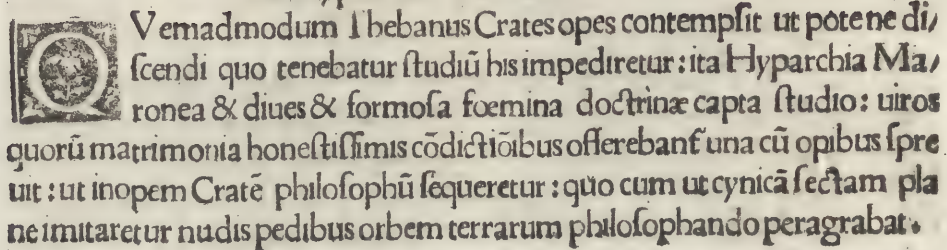 QVemadmodum Thebanus Crates opes contempſit ut pote ne di/
ſcendi quo tenebatur ſtudiū his impediretur: ita Hyparchia Ma/
ronea & diues & formoſa fœmina doctrinæ capta ſtudio: uiros
quorū matrimonia honeſtiſſimis cōdictiōibus offerebant̃ una cū opibus ſpre
uit: ut inopem Cratē philoſophū ſequeretur: quo cum ut cynicā ſectam pla
ne imitaretur nudis pedibus orbem terrarum philoſophando peragrabat.